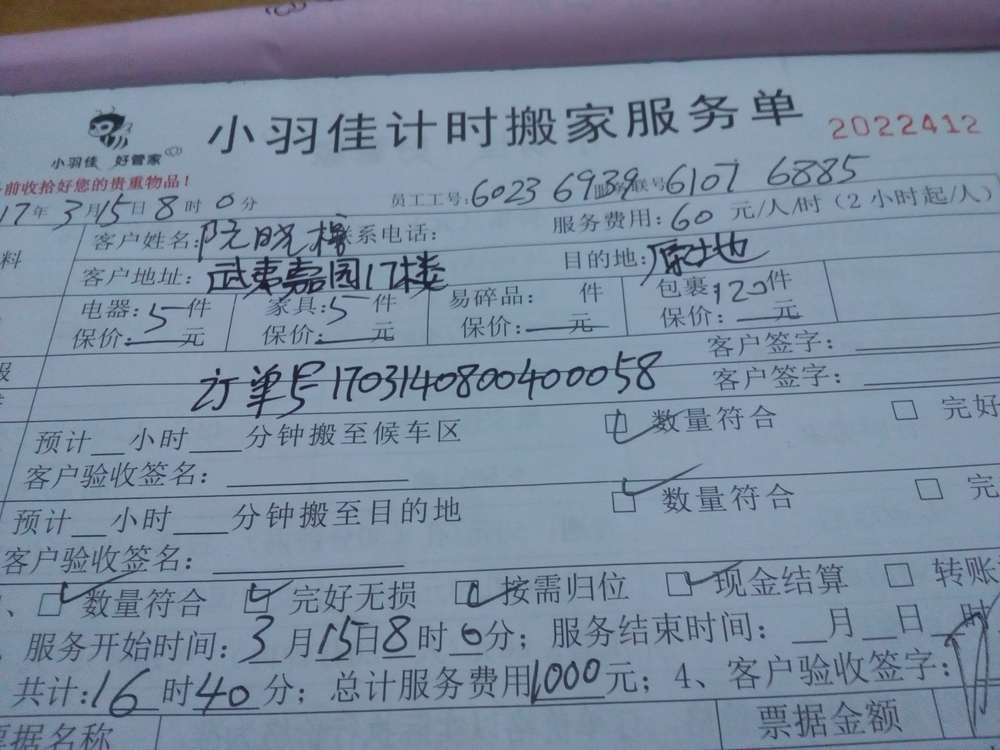 小羽佳计时搬家服务单 2022412
小羽佳 好管家
前收拾好您的贵重物品！
17年3月15日8时0分 员工工号：6023 6939 号6107 6885
客户姓名：阮晓 联系电话： 服务费用：60元/人/时（2小时起/人）
料
客户地址：武夷嘉园17楼 目的地：原地
电器：5件 家具：5件 易碎品： 件 包裹：120件
保价：__元 保价：__元 保价：__元 保价：__元
客户签字：
订单号170314080040​0058 客户签字：
预计__小时___分钟搬至候车区 ☑数量符合 □完好
客户验收签名：
预计__小时___分钟搬至目的地 ☑数量符合 □完
客户验收签名：
、☑数量符合 ☑完好无损 ☑按需归位 ☑现金结算 □转账
服务开始时间：3月15日8时0分；服务结束时间：__月__日__时
共计：16时40分；总计服务费用1000元；4、客户验收签字：
票据名称 票据金额